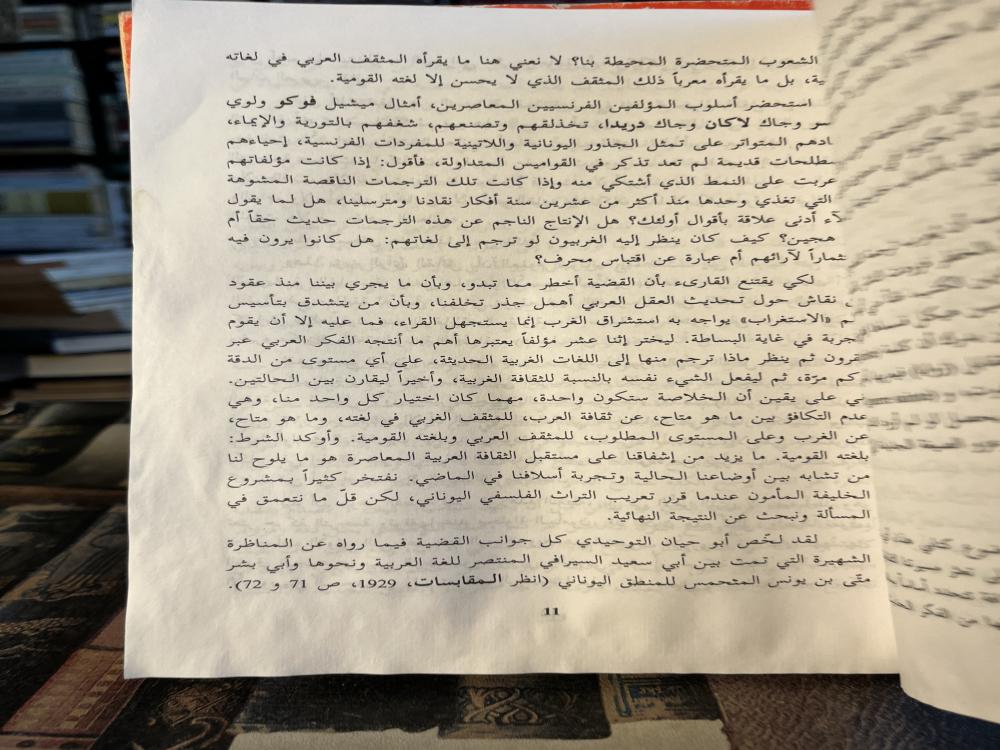 الشعوب المتحضرة المحيطة بنا؟ لا نعني هنا ما يقرأه المثقف العربي في لغاته
ية، بل ما يقرأه معرباً ذلك المثقف الذي لا يحسن إلا لغته القومية.
استحضر أسلوب المؤلفين الفرنسيين المعاصرين، أمثال ميشيل فوكو ولوي
سر وجاك لاكان وجاك دريدا، تخذلقهم وتصنعهم، شغفهم بالتورية والإيماء،
ادهم المتواتر على تمثل الجذور اليونانية واللاتينية للمفردات الفرنسية، إحياءهم
طلحات قديمة لم تعد تذكر في القواميس المتداولة، فأقول: إذا كانت مؤلفاتهم
عربت على النمط الذي أشتكي منه وإذا كانت تلك الترجمات الناقصة المشوهة
التي تغذي وحدها منذ أكثر من عشرين سنة أفكار نقادنا ومترسلينا، هل لما يقول
لآء أدنى علاقة بأقوال أولئك؟ هل الإنتاج الناجم عن هذه الترجمات حديث حقاً أم
هجين؟ كيف كان ينظر إليه الغربيون لو ترجم إلى لغاتهم: هل كانوا يرون فيه
ثماراً لآرائهم أم عبارة عن اقتباس محرف؟
لكي يقتنع القارىء بأن القضية أخطر مما تبدو، وبأن ما يجري بيننا منذ عقود
نقاش حول تحديث العقل العربي أهمل جذر تخلفنا، وبأن من يتشدق بتأسيس
م «الاستغراب» يواجه به استشراق الغرب إنما يستجهل القراء، فما عليه إلا أن يقوم
جربة في غاية البساطة. ليختر إثنا عشر مؤلفاً يعتبرها أهم ما أنتجه الفكر العربي عبر
قرون ثم ينظر ماذا ترجم منها إلى اللغات الغربية الحديثة، على أي مستوى من الدقة
كم مرّة، ثم ليفعل الشيء نفسه بالنسبة للثقافة الغربية، وأخيراً ليقارن بين الحالتين.
ني على يقين أن الخلاصة ستكون واحدة، مهما كان اختيار كل واحد منا، وهي
عدم التكافؤ بين ما هو متاح، عن ثقافة العرب، للمثقف الغربي في لغته، وما هو متاح،
عن الغرب وعلى المستوى المطلوب، للمثقف العربي وبلغته القومية. وأوكد الشرط:
بلغته القومية. ما يزيد من إشفاقنا على مستقبل الثقافة العربية المعاصرة هو ما يلوح لنا
من تشابه بين أوضاعنا الحالية وتجربة أسلافنا في الماضي. نفتخر كثيراً بمشروع
الخليفة المأمون عندما قرر تعريب التراث الفلسفي اليوناني، لكن قلّ ما نتعمق في
المسألة ونبحث عن النتيجة النهائية.
لقد لخّص أبو حيان التوحيدي كل جوانب القضية فيما رواه عن المناظرة
الشهيرة التي تمت بين أبي سعيد السيرافي المنتصر للغة العربية ونحوها وأبي بشر
متّى بن يونس المتحمس للمنطق اليوناني (انظر المقابسات، 1929، ص 71 و 72).
11